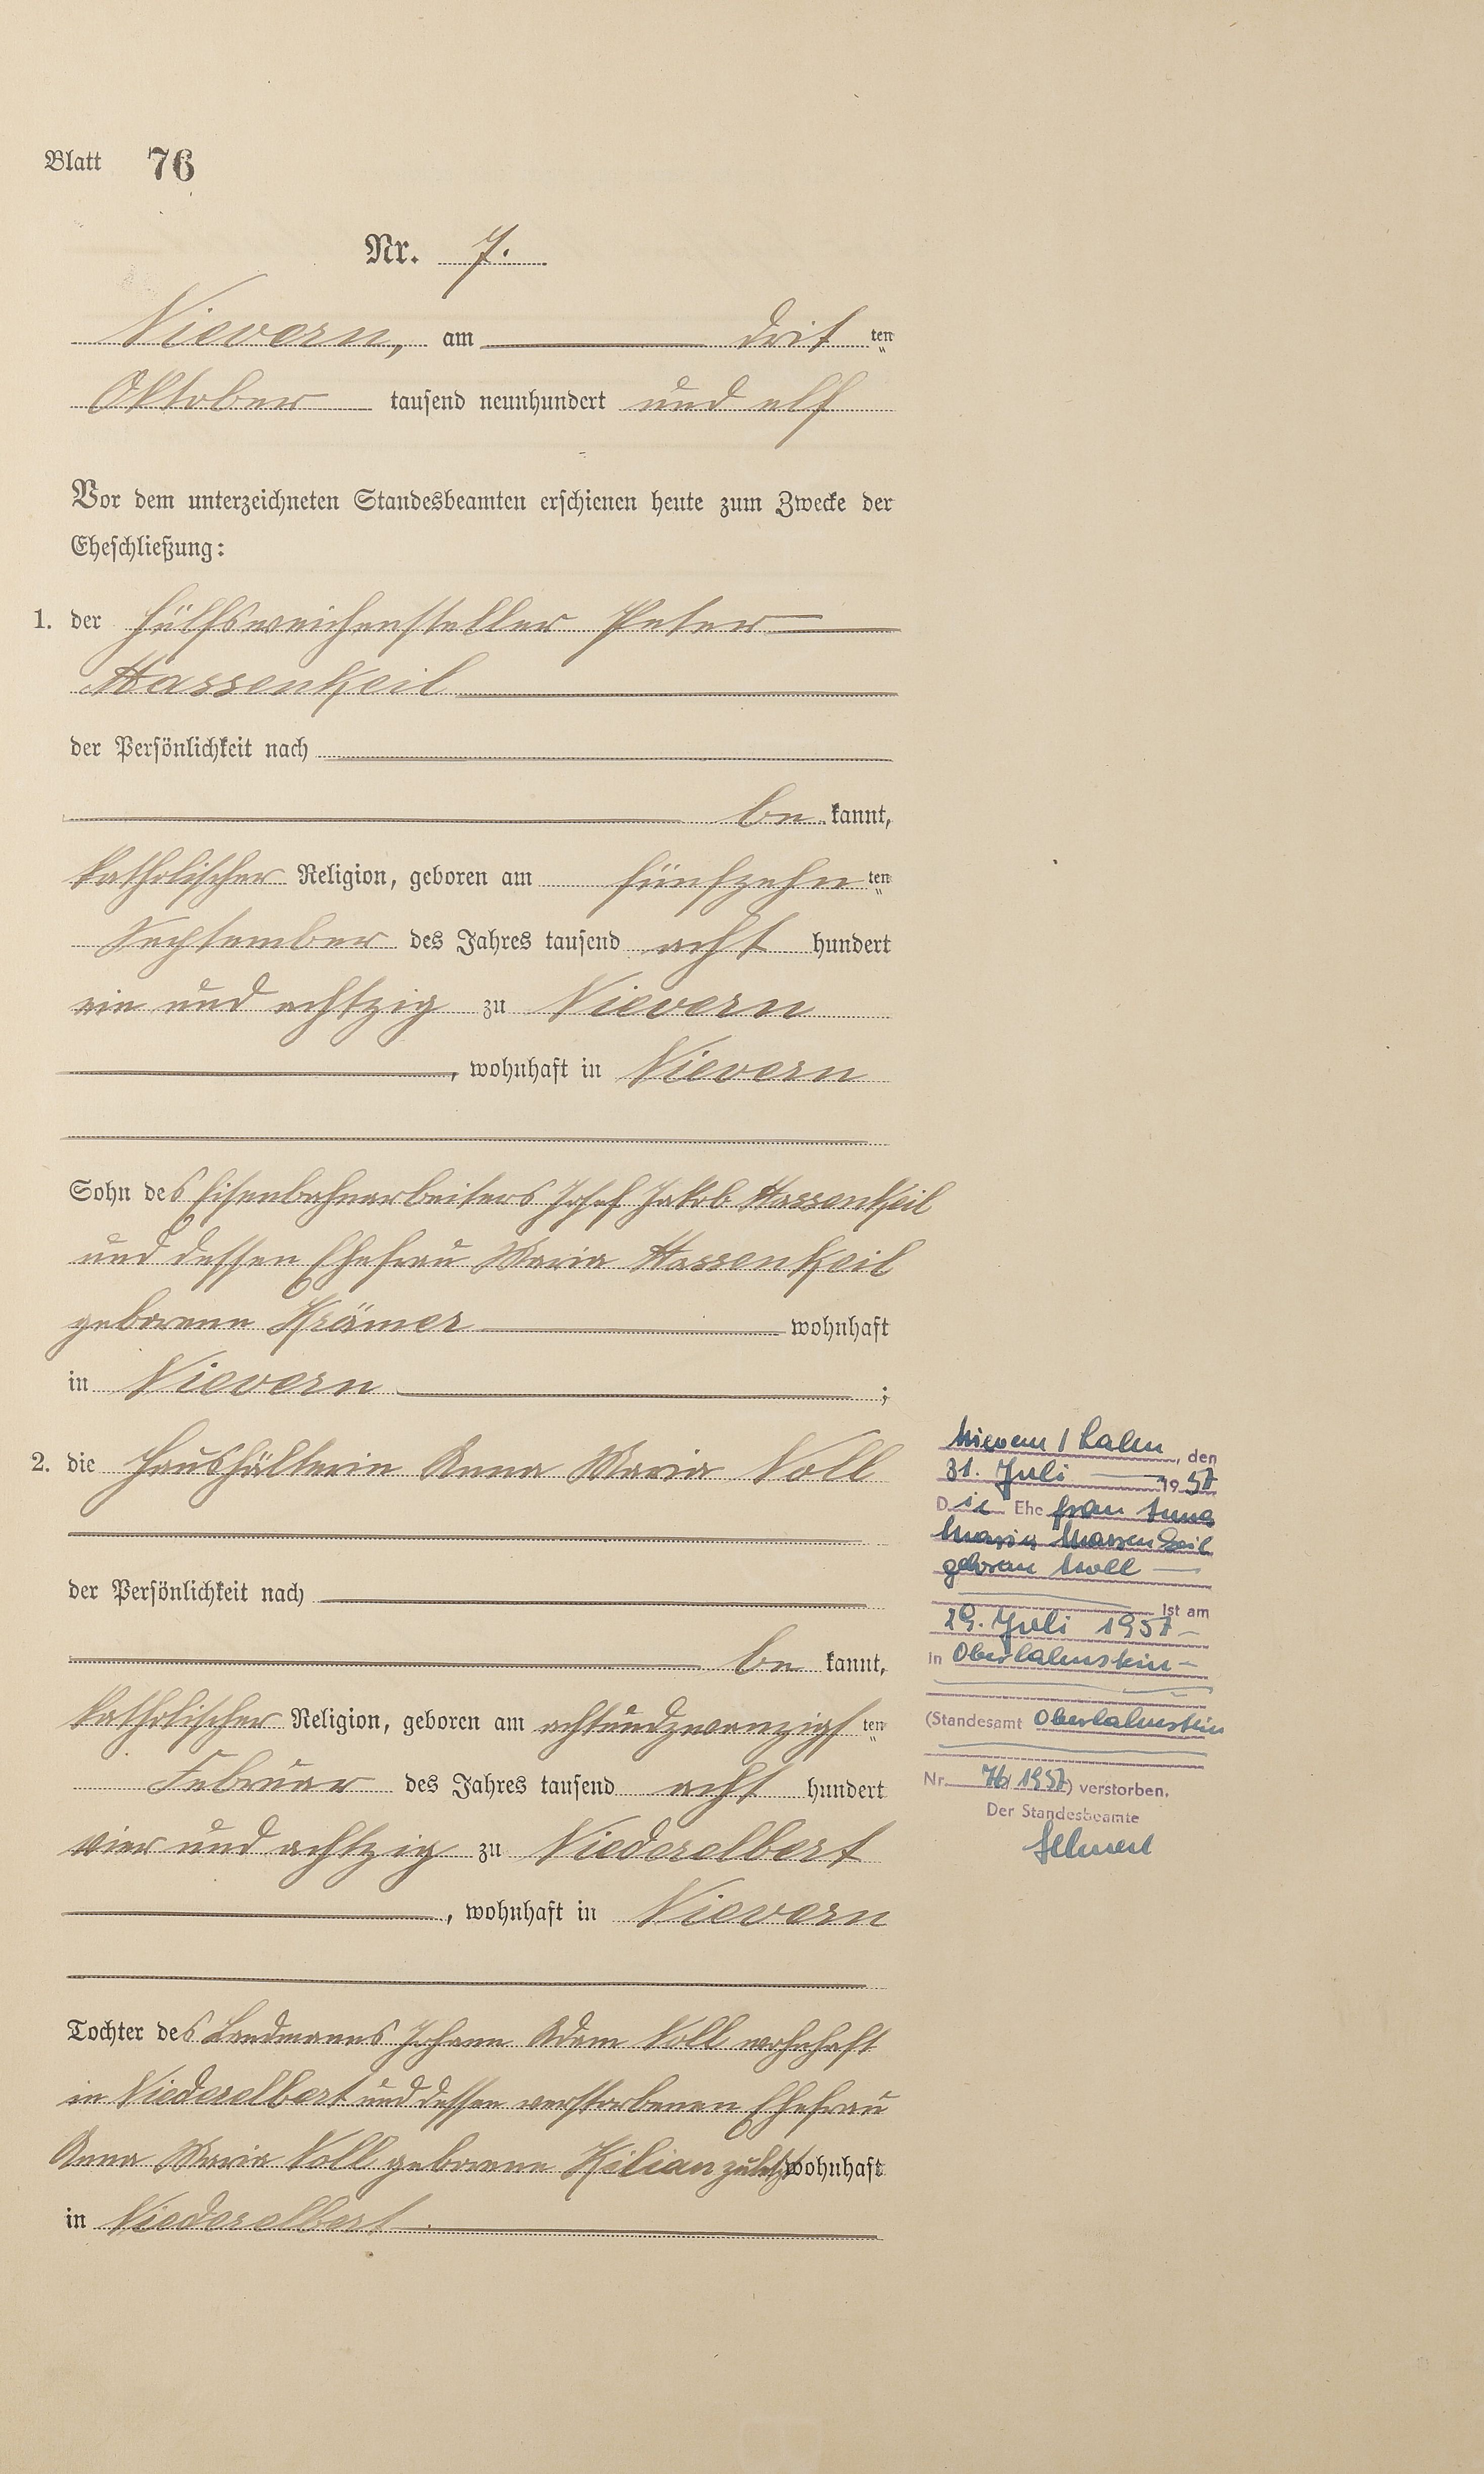 Blatt 76
Nr. 7.
Nievern, am drit ten
Oktober tausend neunhundert und elf
Vor dem unterzeichneten Standesbeamten erschienen heute zum Zwecke der
Eheschließung:
1. der Hülfsweichensteller Peter
Massenkeil
der Persönlichkeit nach
be kannt,
katholischer Religion, geboren am fünfzehn ten
September des Jahres tausend acht hundert
ein und achtzig zu Nievern
, wohnhaft in Nievern
Sohn des Eisenbahnarbeiters Josef Jakob Massenkeil
und dessen Ehefrau Maria Massenkeil
geborene Krämer wohnhaft
in Nievern ;
2. die Haushälterin Anna Maria Noll
der Persönlichkeit nach
be kannt,
katholischer Religion, geboren am achtundzwanzigs ten
Februar des Jahres tausend acht hundert
vier und achtzig zu Niederelbert
, wohnhaft in Nievern
Tochter des Landmanns Johann Adam Noll wohnhaft
in Niederelbert und dessen verstorbenen Ehefrau
Anna Maria Noll geborene Kilian zuletzt wohnhaft
in Niederelbert.
Nievern / Lahn, den
31. Juli 1957
Die Ehe frau Anna
Maria Massenkeil
geboren Noll
ist am
29. Juli 1957
in Oberlahnstein
(Standesamt Oberlahnstein
Nr. 76/1957) verstorben.
Der Standesbeamte